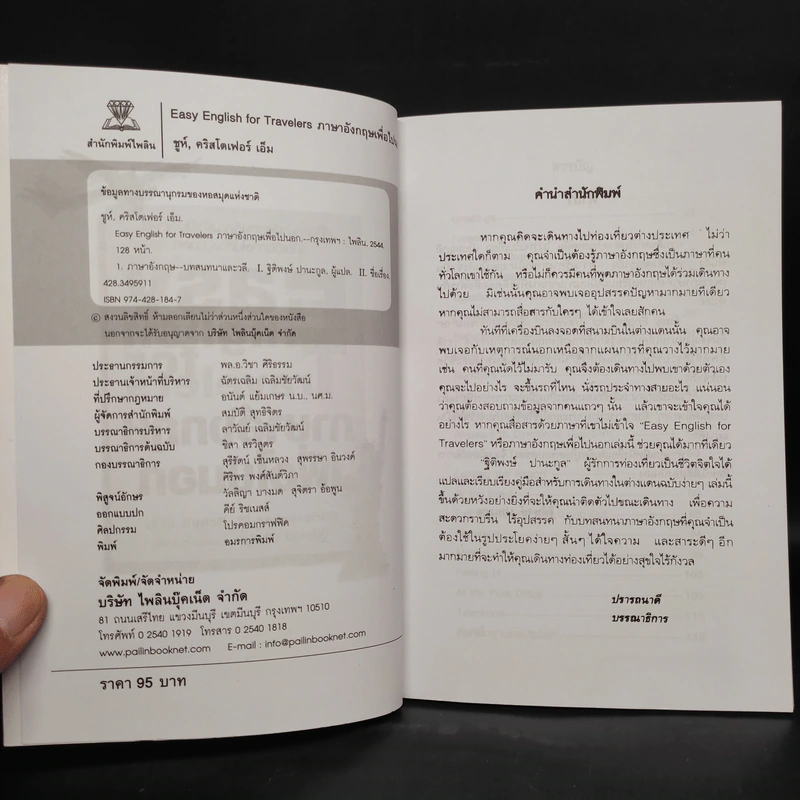 สำนักพิมพ์ไพลิน
Easy English for Travelers ภาษาอังกฤษเพื่อไปน
ชูห์, คริสโตเฟอร์ เอ็ม
ข้อมูลทางบรรณานุกรมของหอสมุดแห่งชาติ
ชูห์, คริสโตเฟอร์ เอ็ม.
Easy English for Travelers ภาษาอังกฤษเพื่อไปนอก.--กรุงเทพฯ : ไพลิน, 2544.
128 หน้า.
1. ภาษาอังกฤษ--บทสนทนาและวลี. I. ฐิติพงษ์ ปานะกูล, ผู้แปล. II. ชื่อเรื่อง.
428.3495911
ISBN 974-428-184-7
© สงวนลิขสิทธิ์ ห้ามลอกเลียนไม่ว่าส่วนหนึ่งส่วนใดของหนังสือ
นอกจากจะได้รับอนุญาตจาก บริษัท ไพลินบุ๊คเน็ต จำกัด
ประธานกรรมการ พล.อ.วิชา ศิริธรรม
ประธานเจ้าหน้าที่บริหาร ฉัตรเฉลิม เฉลิมชัยวัฒน์
ที่ปรึกษากฎหมาย อนันต์ แย้มเกษร น.บ., นศ.ม.
ผู้จัดการสำนักพิมพ์ สมบัติ สุทธิจิตร
บรรณาธิการบริหาร ลาวัณย์ เฉลิมชัยวัฒน์
บรรณาธิการต้นฉบับ ชิสา สรวิสูตร
กองบรรณาธิการ สุรีรัตน์ เซ็นหลวง สุพรรษา อินวงศ์
ศิริพร พงศ์สันติวิภา
พิสูจน์อักษร วัลลิญา บางมด สุจิตรา อ้อพูน
ออกแบบปก คีย์ ริชเนสส์
ศิลปกรรม โปรคอมกราฟฟิค
พิมพ์ อมรการพิมพ์
จัดพิมพ์/จัดจำหน่าย
บริษัท ไพลินบุ๊คเน็ต จำกัด
81 ถนนเสรีไทย แขวงมีนบุรี เขตมีนบุรี กรุงเทพฯ 10510
โทรศัพท์ 0 2540 1919 โทรสาร 0 2540 1818
www.pailinbooknet.com E-mail : info@pailinbooknet.com
ราคา 95 บาท
คำนำสำนักพิมพ์
หากคุณคิดจะเดินทางไปท่องเที่ยวต่างประเทศ ไม่ว่า
ประเทศใดก็ตาม คุณจำเป็นต้องรู้ภาษาอังกฤษซึ่งเป็นภาษาที่คน
ทั่วโลกเขาใช้กัน หรือไม่ก็ควรมีคนที่พูดภาษาอังกฤษได้ร่วมเดินทาง
ไปด้วย มิเช่นนั้นคุณอาจพบเจออุปสรรคปัญหามากมายทีเดียว
หากคุณไม่สามารถสื่อสารกับใครๆ ได้เข้าใจเลยสักคน
ทันทีที่เครื่องบินลงจอดที่สนามบินในต่างแดนนั้น คุณอาจ
พบเจอกับเหตุการณ์นอกเหนือจากแผนการที่คุณวางไว้มากมาย
เช่น คนที่คุณนัดไว้ไม่มารับ คุณจึงต้องเดินทางไปพบเขาด้วยตัวเอง
คุณจะไปอย่างไร จะขึ้นรถที่ไหน นั่งรถประจำทางสายอะไร แน่นอน
ว่าคุณต้องสอบถามข้อมูลจากคนแถวๆ นั้น แล้วเขาจะเข้าใจคุณได้
อย่างไร หากคุณสื่อสารด้วยภาษาที่เขาไม่เข้าใจ "Easy English for
Travelers" หรือภาษาอังกฤษเพื่อไปนอกเล่มนี้ ช่วยคุณได้มากทีเดียว
"ฐิติพงษ์ ปานะกูล" ผู้รักการท่องเที่ยวเป็นชีวิตจิตใจได้
แปลและเรียบเรียงคู่มือสำหรับการเดินทางในต่างแดนฉบับง่ายๆ เล่มนี้
ขึ้นด้วยหวังอย่างยิ่งที่จะให้คุณนำติดตัวไปขณะเดินทาง เพื่อความ
สะดวกราบรื่น ไร้อุปสรรค กับบทสนทนาภาษาอังกฤษที่คุณจำเป็น
ต้องใช้ในรูปประโยคง่ายๆ สั้นๆ ได้ใจความ และสาระดีๆ อีก
มากมายที่จะทำให้คุณเดินทางท่องเที่ยวได้อย่างสุขใจไร้กังวล
ปรารถนาดี
บรรณาธิการ